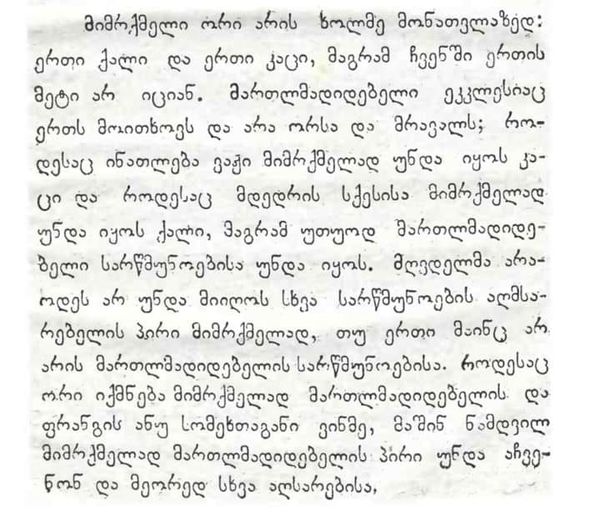 მიმრქმელი ორი არის ხოლმე მონათვლაზედ:
ერთი ქალი და ერთი კაცი, მაგრამ ჩვენში ერთის
მეტი არ იციან. მართლმადიდებელი ეკკლესიაც
ერთს მოითხოვს და არა ორსა და მრავალს; რო-
დესაც ინათლება ვაჟი მიმრქმელად უნდა იყოს კა-
ცი და როდესაც მდედრის სქესისა მიმრქმელად
უნდა იყოს ქალი, მაგრამ უთუოდ მართლმადიდე-
ბელი სარწმუნოებისა უნდა იყოს. მღვდელმა არა-
ოდეს არ უნდა მიიღოს სხვა სარწმუნოების აღმსა-
რებელის პირი მიმრქმელად, თუ ერთი მაინც არ
არის მართლმადიდებელის სარწმუნოებისა. როდესაც
ორი იქმნება მიმრქმელად მართლმადიდებელის და
ფრანგის ანუ სომეხთაგანი ვინმე, მაშინ ნამდვილ
მიმრქმელად მართლმადიდებელის პირი უნდა აჩვე-
ნონ და მეორედ სხვა აღსარებისა,